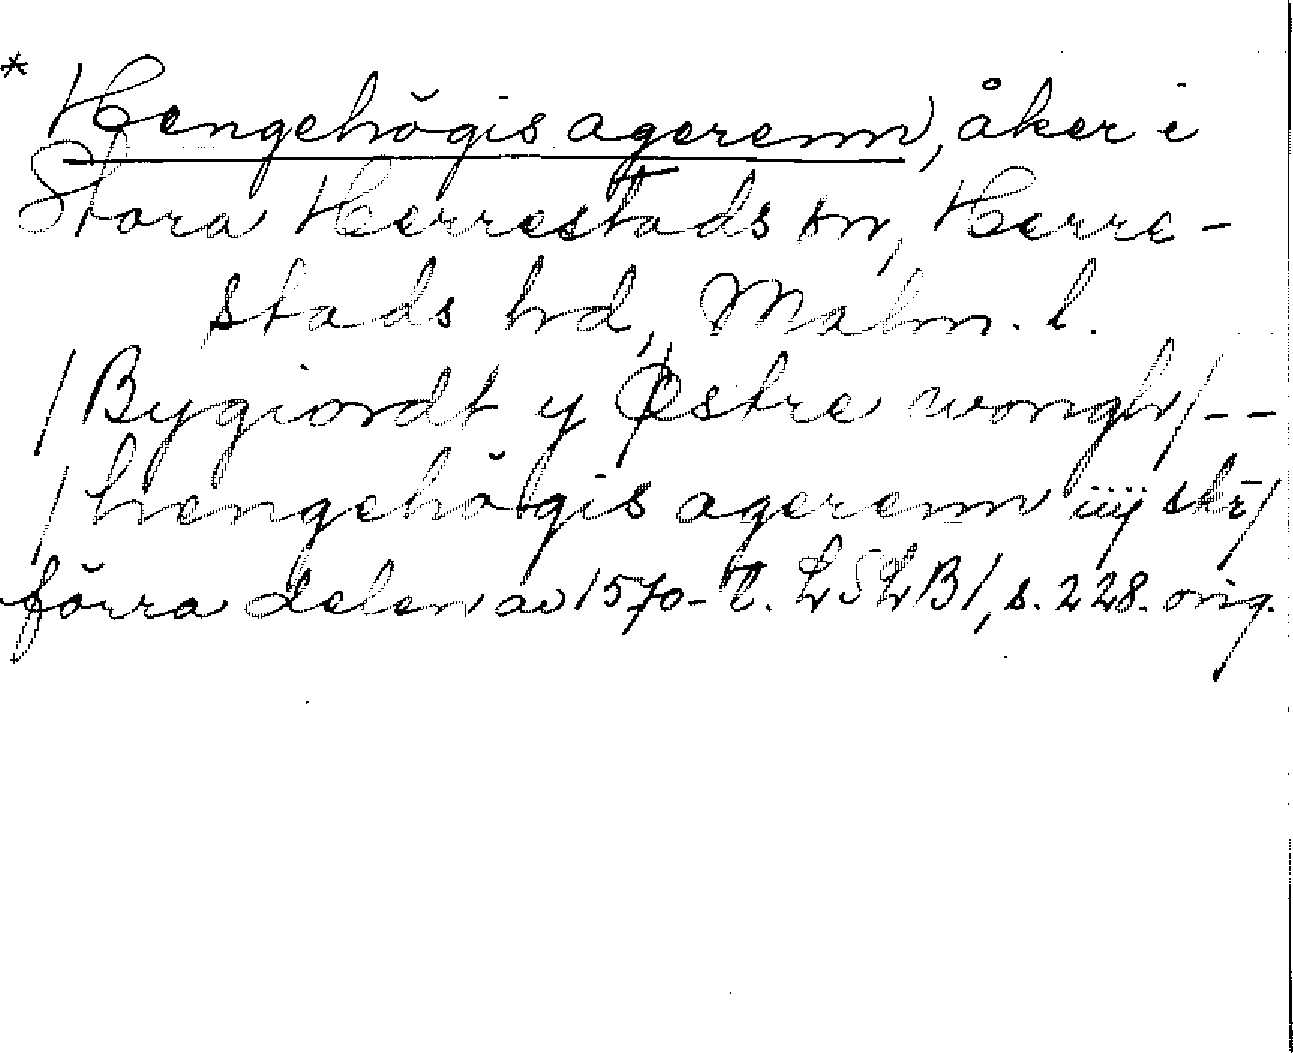 * Hengehögis agerenn, åker i
Stora Herrestads sn, Herre-
stads hd, Malm. l.
/Bygiordt y Østre wongh/--
/hengehögis agerenn iiij
förra delen av 1570-t. LSLB1, s. 228. orig.